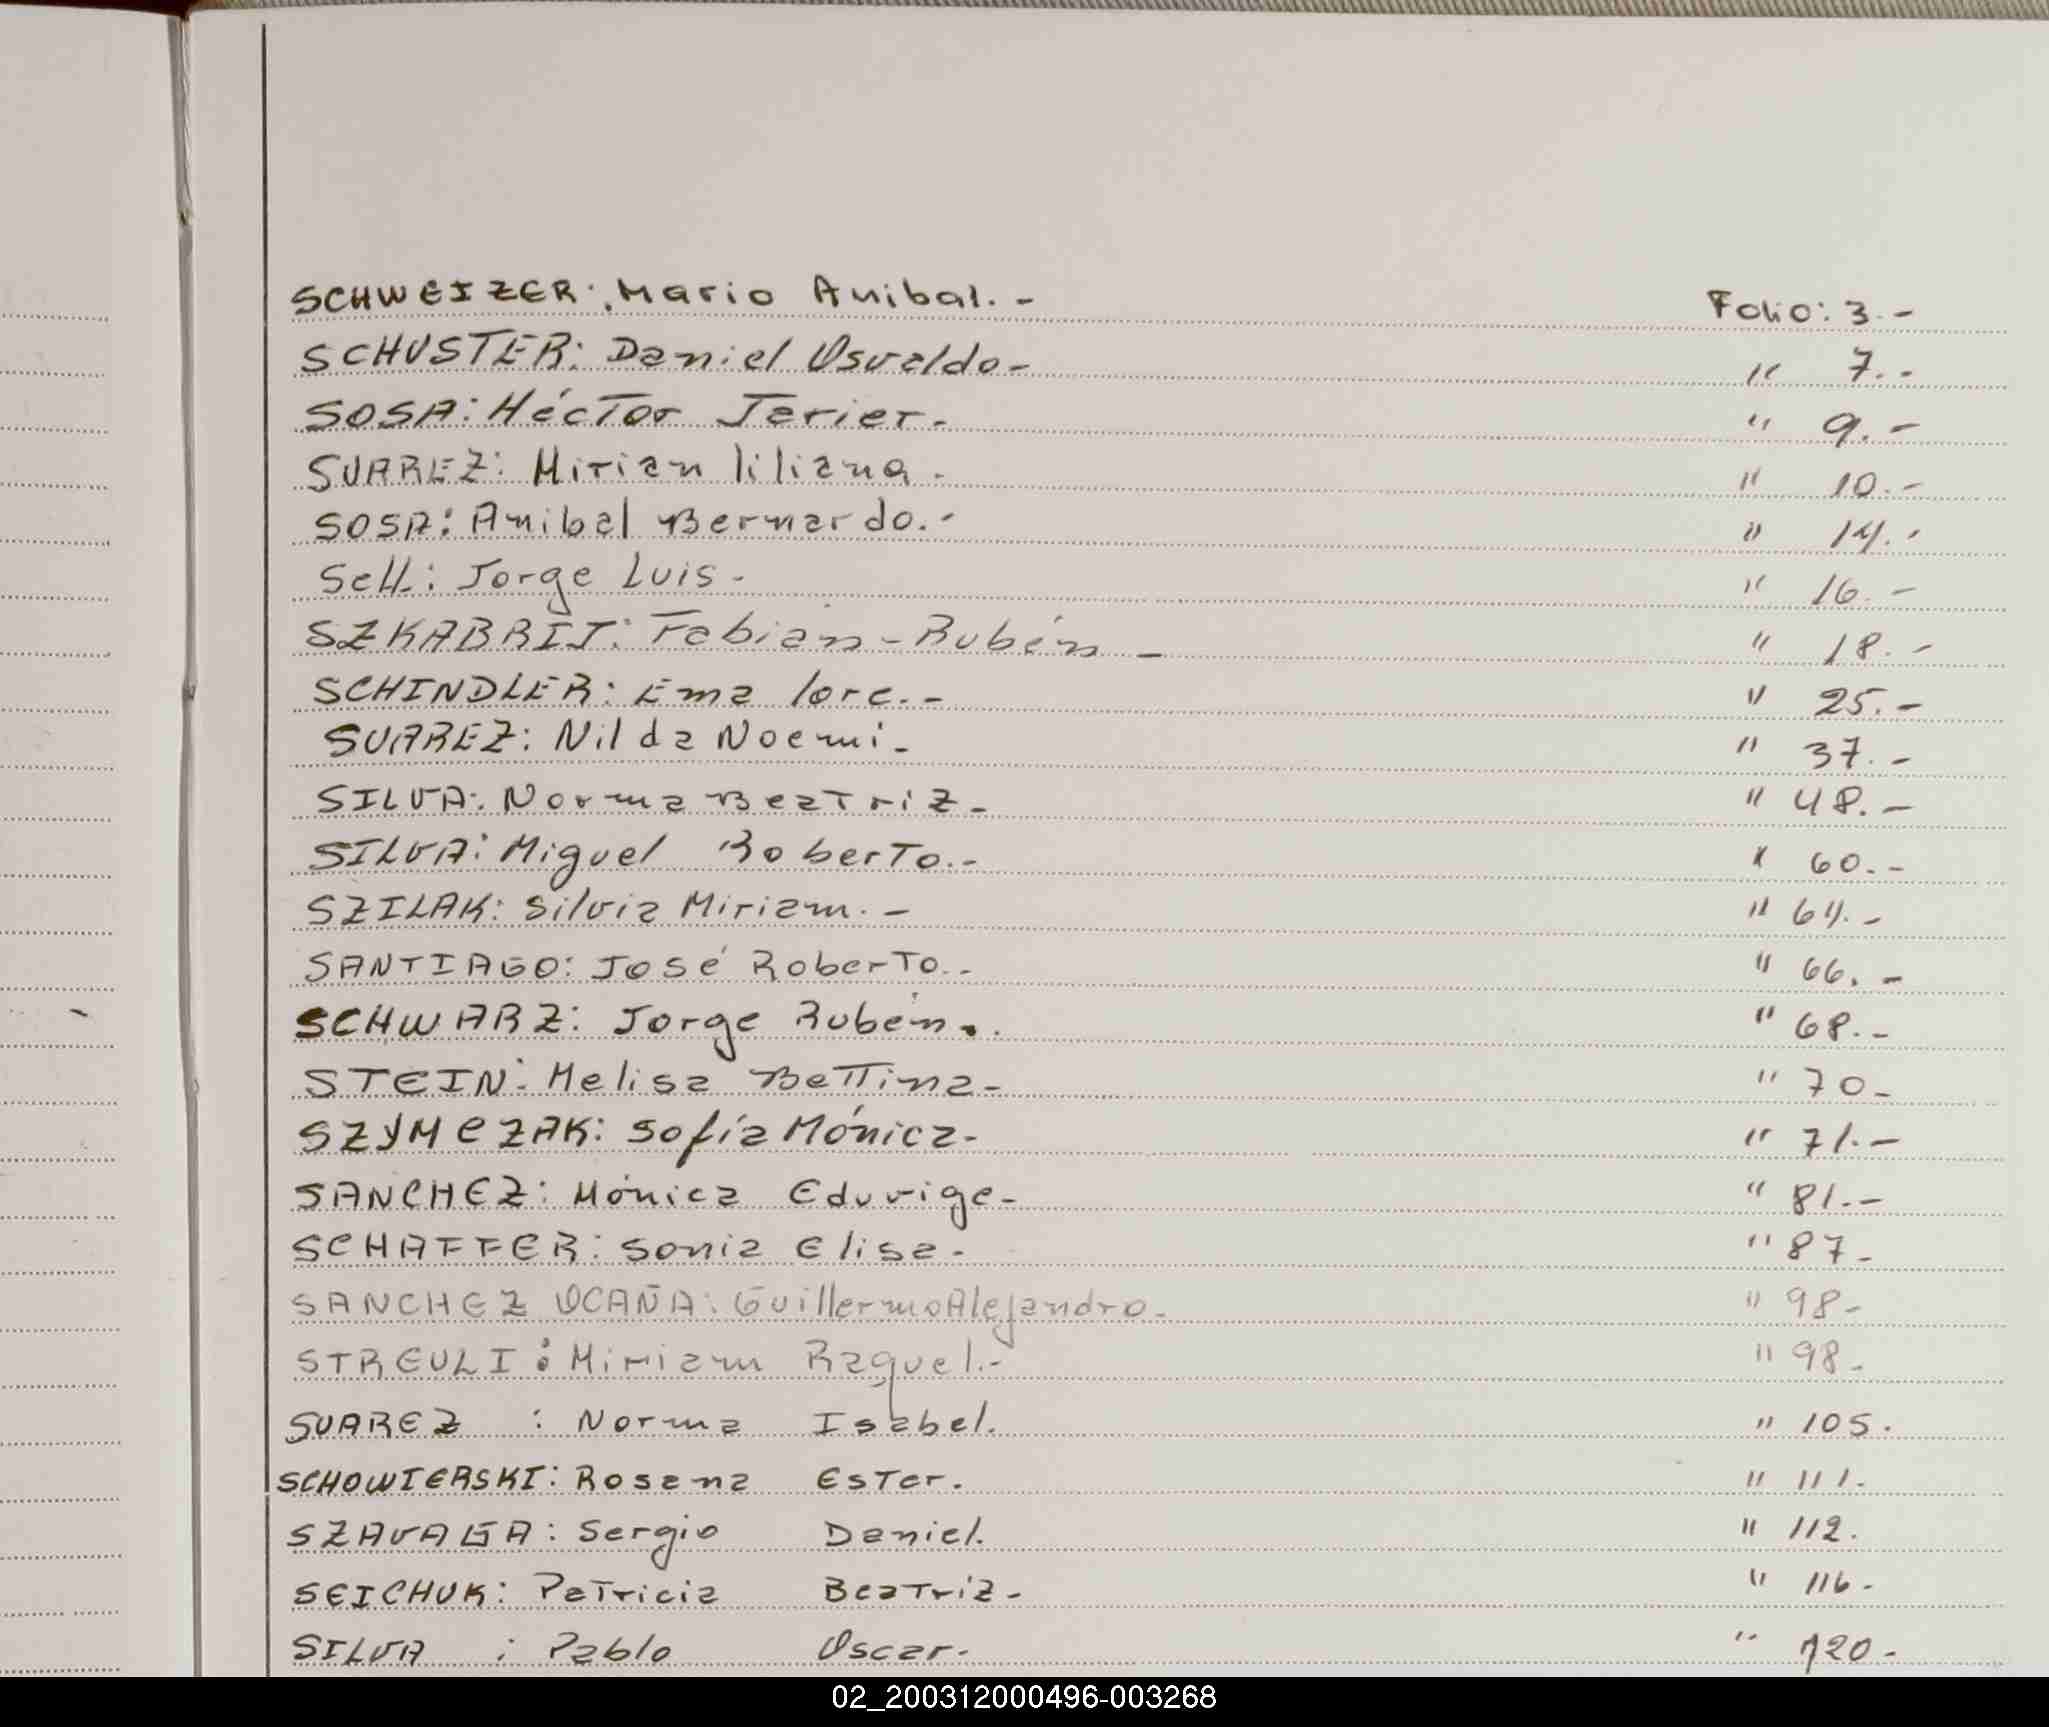 SCHWEIZER: Mario Anibal.- Folio: 3.-
SCHUSTER: Daniel Osvaldo- " 7.-
SOSA: Héctor Jerier.- " 9.-
SUAREZ: Mirian liliana. " 10.-
SOSA: Anibal Bernardo.- " 14.-
Sell: Jorge Luis- " 16.-
SZKABRIJ: Fabián-Rubén - " 18.-
SCHINDLER: Ema lore.- " 25.-
SUAREZ: Nilda Noemi- " 37.-
SILVA: Norma Beatriz- " 48.-
SILVA: Miguel Roberto.- " 60.-
SZILAK: Silvia Miriam.- " 64.-
SANTIAGO: José Roberto.- " 66.-
SCHWARZ: Jorge Rubén.. " 68.-
STEIN: Melisa Bettina- " 70-
SZYMCZAK: Sofía Mónica- " 71.-
SANCHEZ: Mónica Eduvige- " 81.-
SCHAFFER: Sonia Elisa- " 87-
SANCHEZ OCAÑA: Guillermo Alejandro- " 98-
STREULI: Miriam Raquel.- " 98-
SUAREZ : Norma Isabel. " 105.
SCHOWIERSKI: Rosana Ester. " 111.
SZAVAGA: Sergio Daniel. " 112.
SEICHUK: Patricia Beatriz- " 116-
SILVA : Pablo Oscar- " 120-
02_200312000496-003268